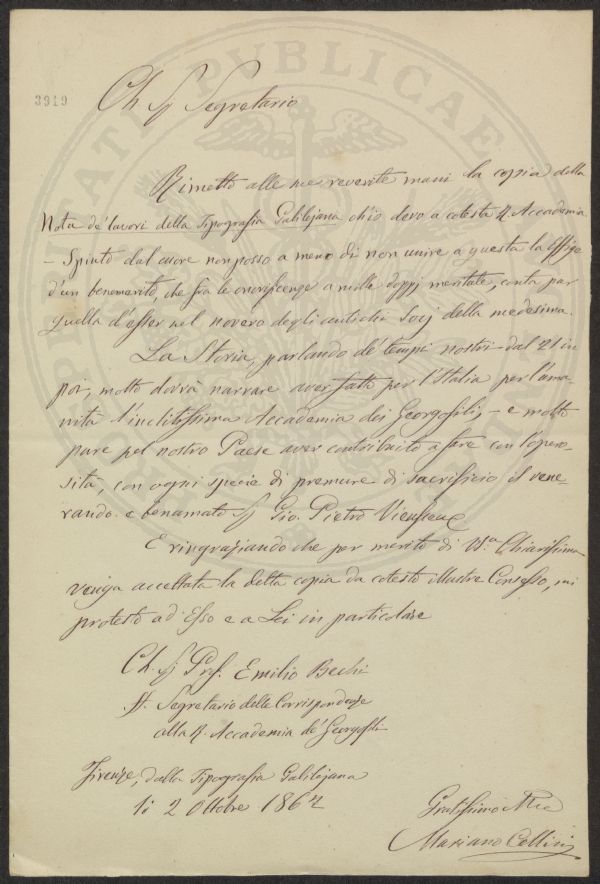 3919
Ch Sg Segretario
Rimetto alle sue reverite mani la copia della
Nota de' lavori della Tipografia Galilejana ch'io devo a cotesta R. Accademia
– Spinto dal cuore non posso a meno di non unire a questa la Effige
d'un benemerito, che fra le onorificenze a mille doppj meritate, conta pur
quella d'esser nel novero degli antichi Socj della medesima.
La Storia, parlando de' tempi nostri – dal 21 in
poi, molto dovrà narrare aver fatto per l'Italia per l'uma-
nità l'inclitissima Accademia dei Georgofili, – e molto
pure pel nostro Paese aver contribuito a fare con l'opero-
sità, con ogni specie di premure di sacrificio il vene-
rando e benamato Sg Gio. Pietro Vieusseux
E ringraziando che per merito di V.ra Chiarissima
venga accettata la detta copia da cotesto Illustre Consesso, mi
protesto ad Esso e a Lei in particolare
Ch. Sg Prof. Emilio Bechi
Segretario delle Corrispondenze
alla R. Accademia de' Georgofili
Firenze, dalla Tipografia Galilejana
li 2 Ottobre 1862
Mariano Cellini
PUBLICAE